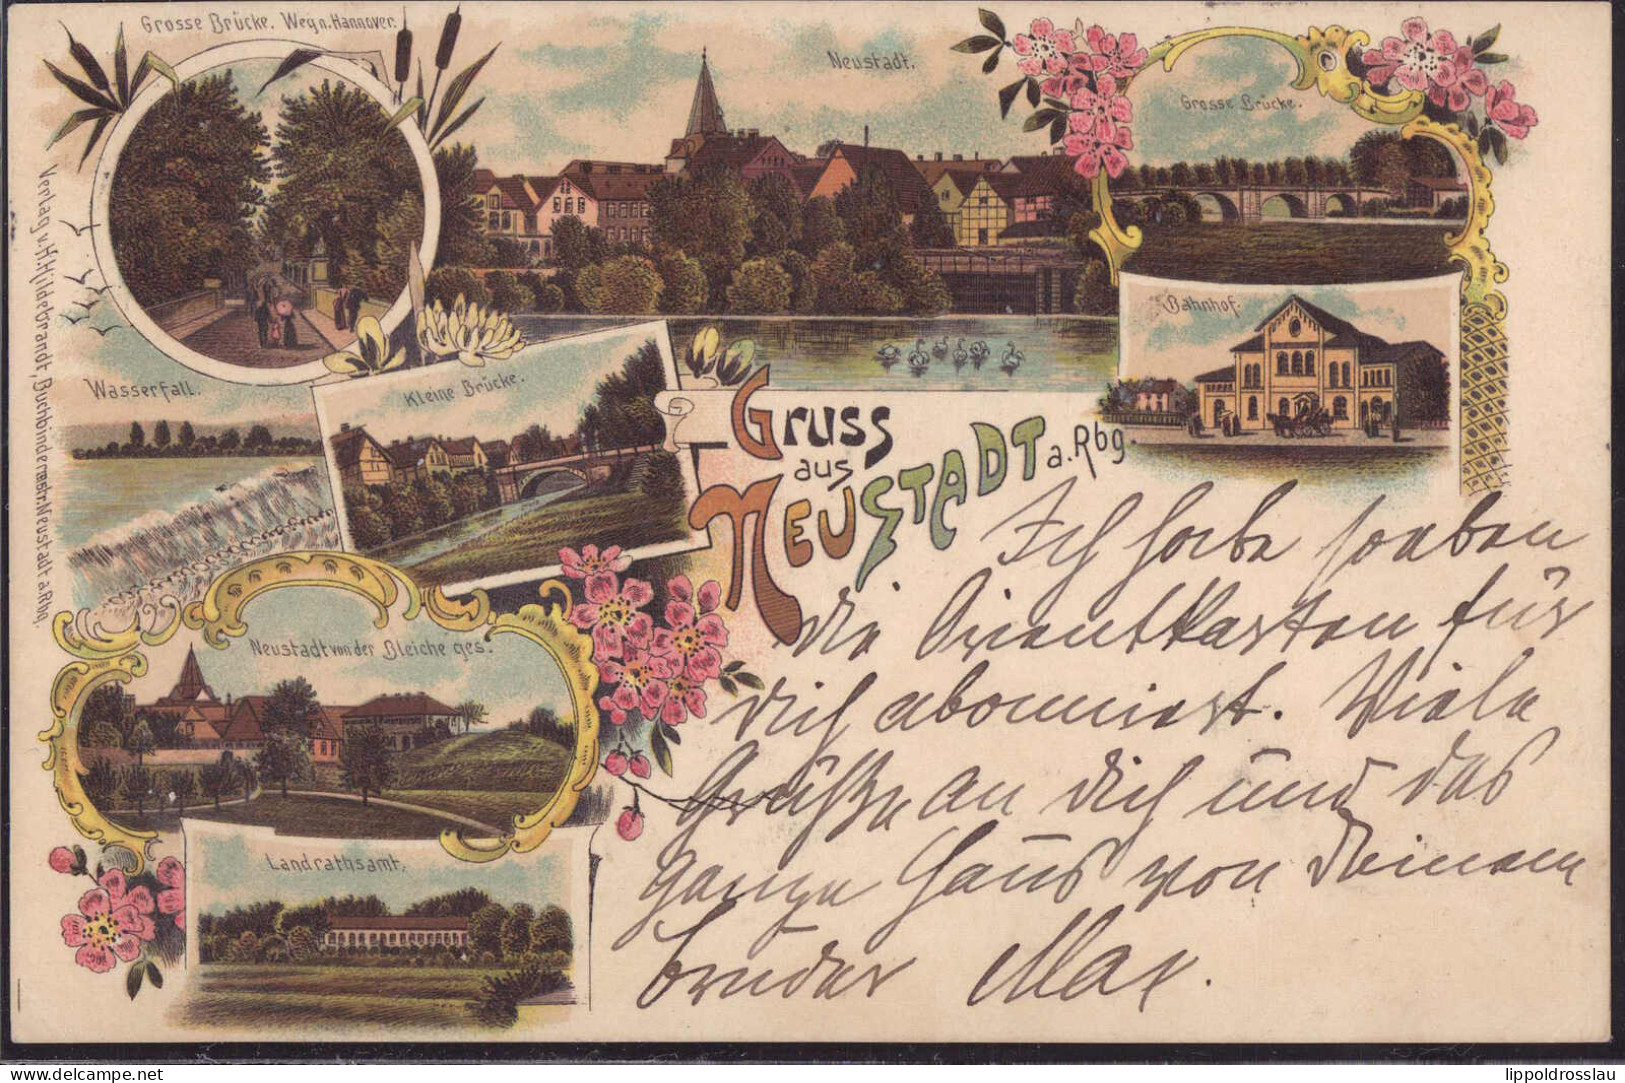 Grosse Brücke. Weg n. Hannover.
Neustadt.
Grosse Brücke.
Bahnhof.
Wasserfall.
Kleine Brücke.
Verlag v. H. Hildebrandt, Buchbindermstr. Neustadt a. Rbg.
Gruss
aus
Neustadt a. Rbg.
Neustadt von der Bleiche ges.
Landrathsamt.
Ich habe soeben
die Orientkarten für
dich abonniert. Viele
Grüße an dich und das
ganze Haus von Deinem
bruder Max.
© The-CC.com
lippoldrosslau